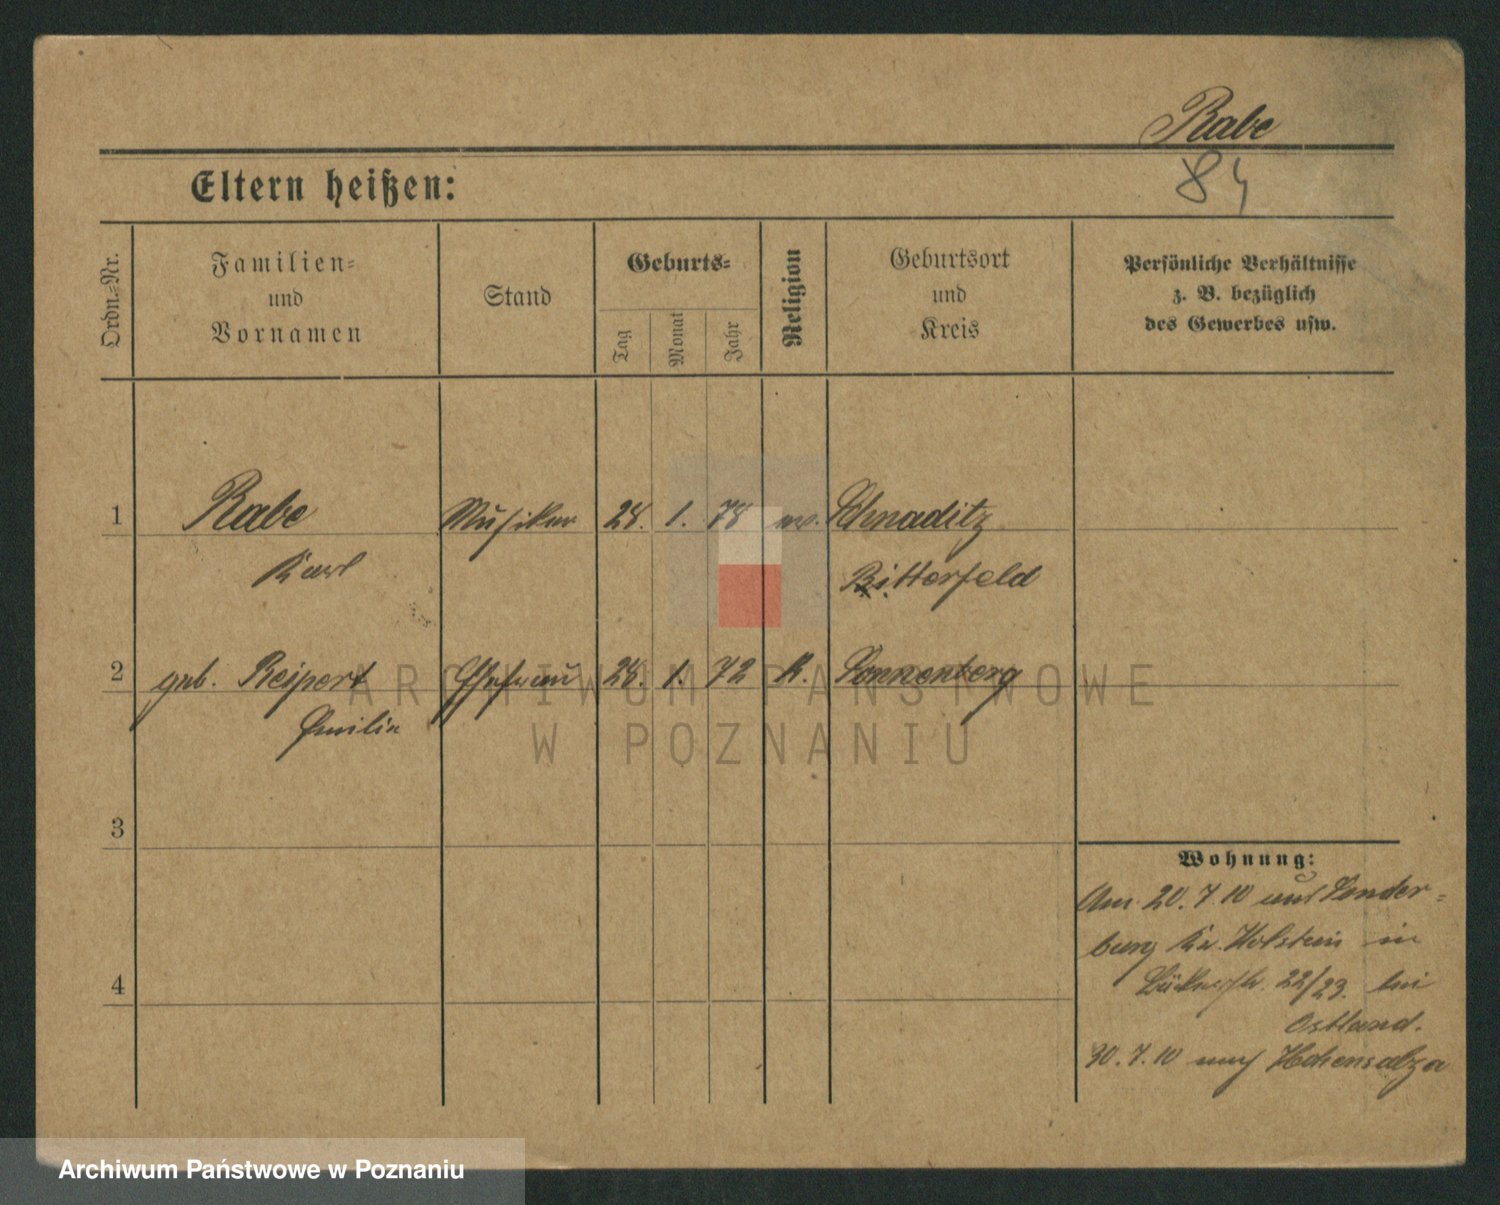 Rabe
84
Eltern heißen:
Ordn.-Nr.
Familien-
und
Vornamen
Stand
Geburts-
Tag
Monat
Jahr
Religion
Geburtsort
und
Kreis
Persönliche Verhältnisse
z. B. bezüglich
des Gewerbes usw.
1 Rabe Musiker 28. 1. 78 ev. Schnaditz
Karl Bitterfeld
2 geb. Reipert Ehefrau 28. 1. 72 k. Sonnenberg
Emilie
ARCHIWUM PAŃSTWOWE
W POZNANIU
3
4
Wohnung:
Am 20.7.10 aus Sonder-
burg Kr. Holstein in
22/23. bei
Ostland.
30.7.10 nach Hohensalza
Archiwum Państwowe w Poznaniu